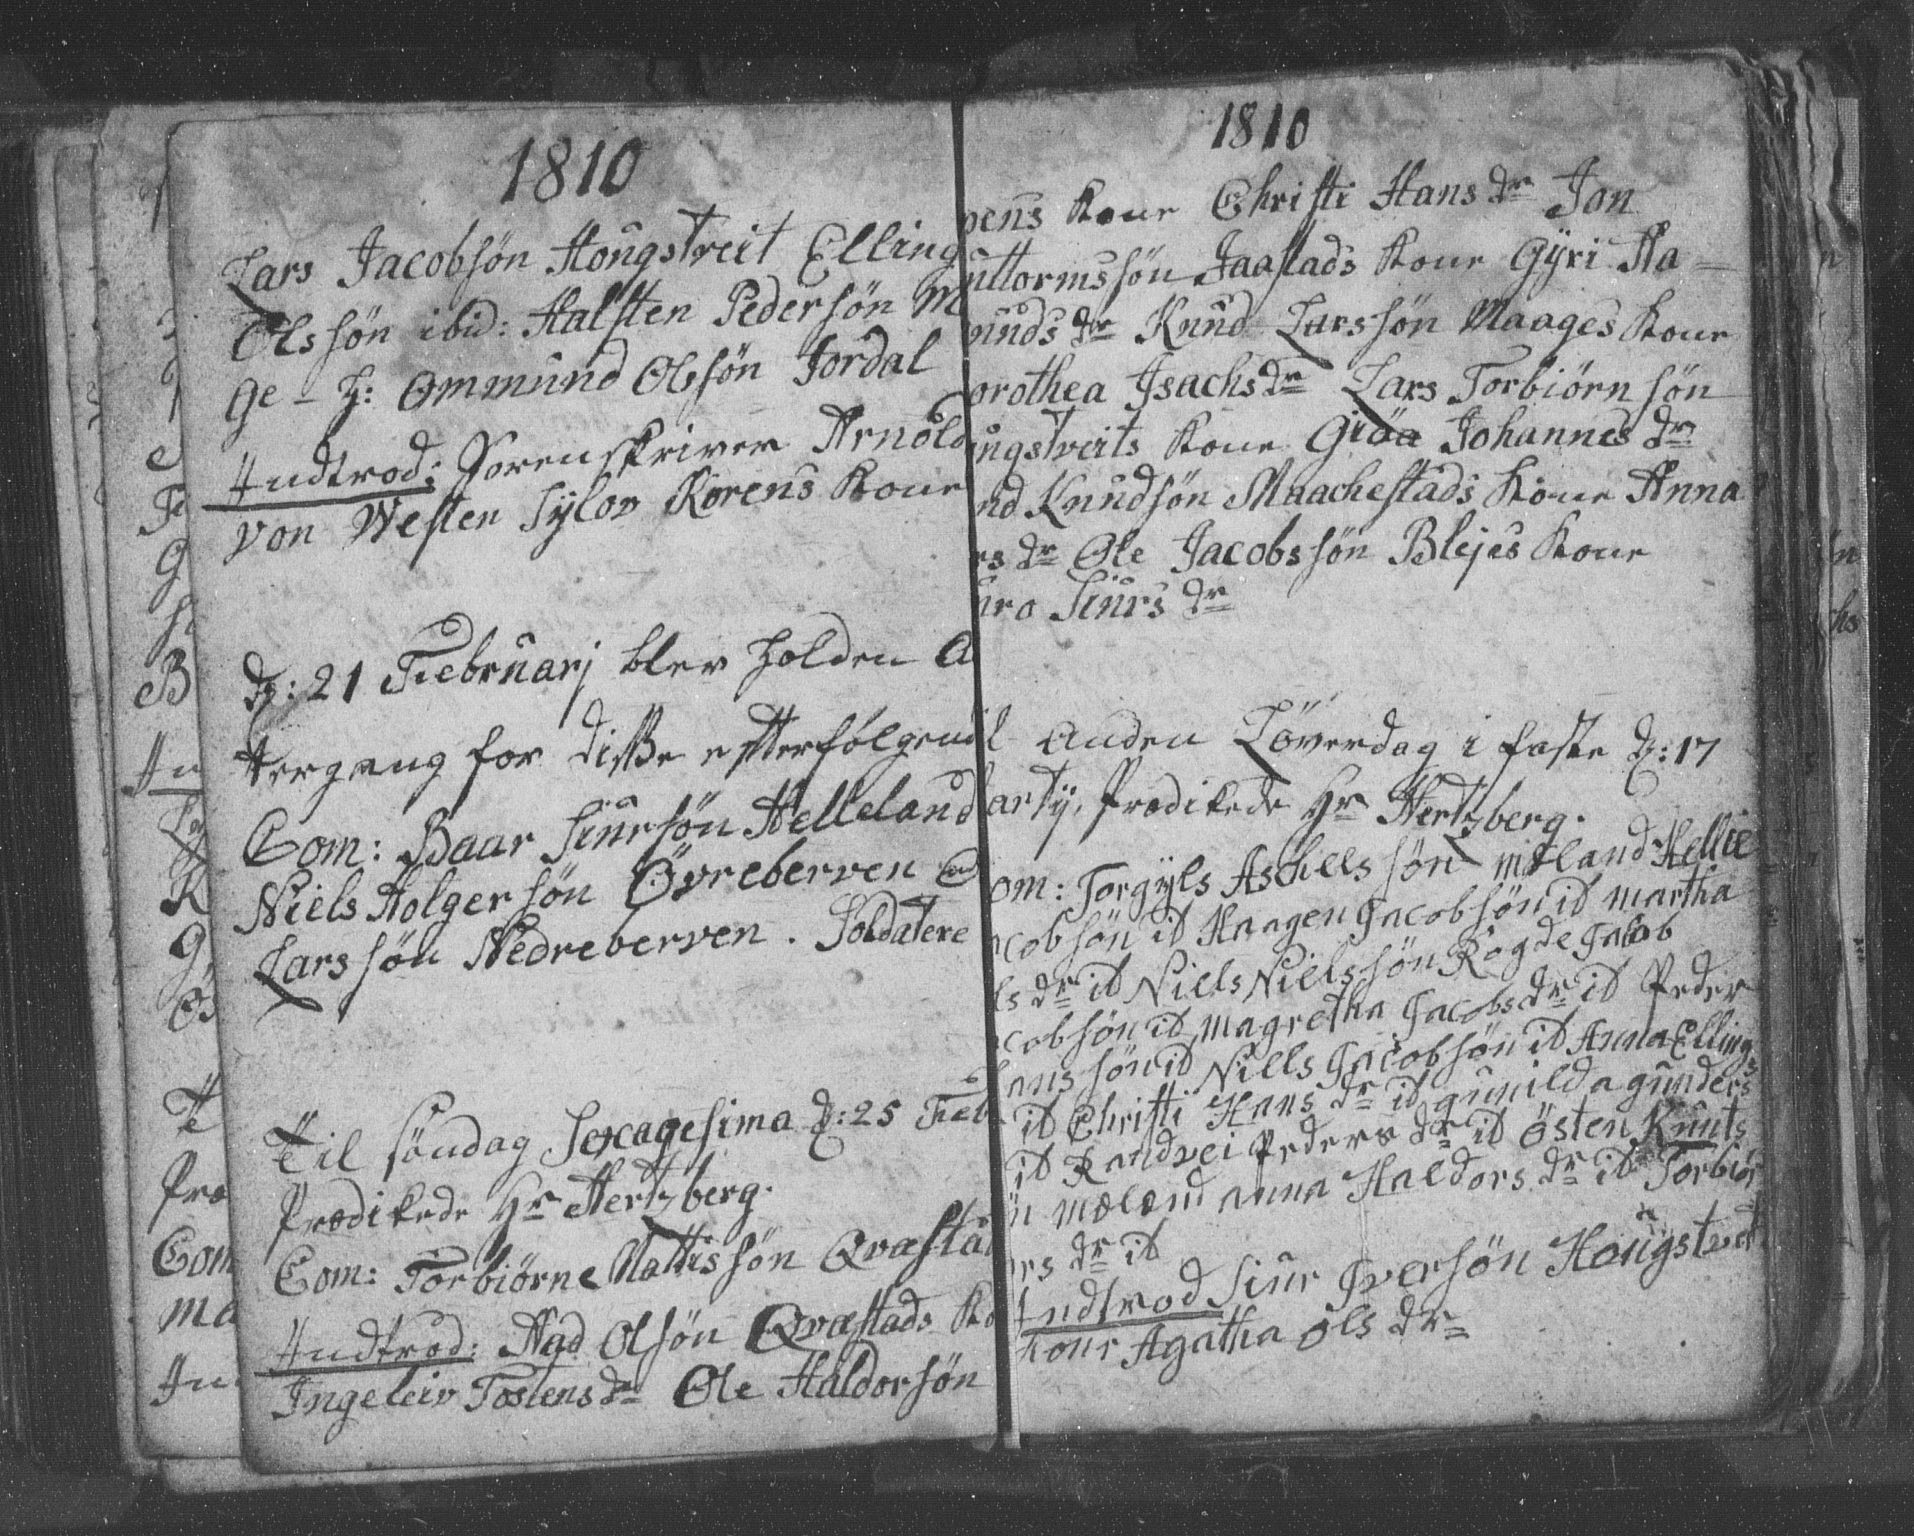 1810
Lars Jacobsøn Hougstveit Elling
Olssøn ibid: Halsten Pedersøn M
ge - H: Ommund Olsøn Jordal
Indtrod: Sorenskriver Arnold
von Westen Sylov Korens Kone
D: 21 Februarj blev holden A
tergang for disse efterfølgend
Com: Baar Siursøn Helleland
Niels Holgersøn Øvreberven
Larssøn Nedreberven. Soldatere
Til søndag Sexagesima D: 25 Feb
Prædikede Hr Hertzberg.
Com: Torbiørne Mattissøn Qvæstad
Indtrod: Aad Olsøn Qvæstads Ko
Ingeleiv Tostens dr Ole Haldorsøn
1810
pens Kone Christi Hans dr Jon
uttormssøn Jaastads Kone Gÿri Aa-
unds dr Knud Larssøn Maages Kone
orothea Isachs dr Lars Torbiørnsøn
ugstveits Kone Giøa Johannes dr
nd Knudsøn Maachestads Kone Anna
rs dr Ole Jacobssøn Blejes Kone
uro Siurs dr
l Anden Löverdag i faste D: 17
artÿ, Prædikede Hr Hertzberg.
om: Torgÿls Aschelssøn mæland Hellie
acobsøn it Haagen Jacobsøn it martha
ls dr it Niels Nielssøn Rogde Jacob
acobsøn it magretha Jacobs dr it Peder
anssøn it Niels Jacobsøn it Anna Ellings
it Christi Hans dr it gunilda gunders
it Randvei Peders dr it Østen Knuts
n mæland anna Haldors dr it Torbiør
ors dr it
Indtrod Siur Iversøn Hougstvet
Kone Agatha Ols dr